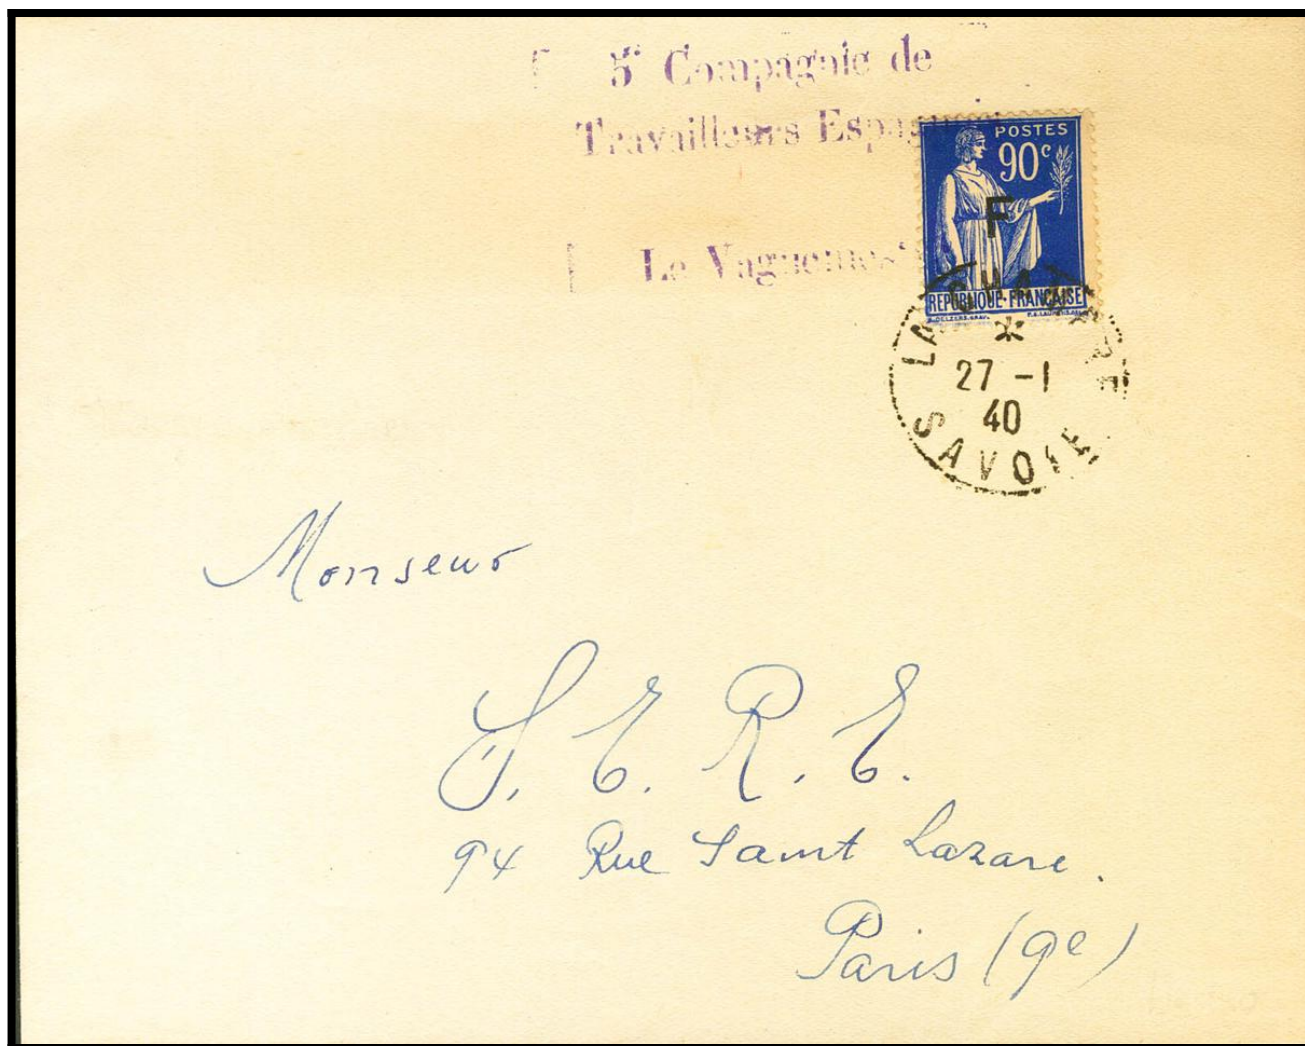 5e Compagnie de
Travailleurs Espagnols
Le Vaguemestre
POSTES
90c
F
REPUBLIQUE·FRANÇAISE
LA CHAMBRE
27 -1
40
SAVOIE
Monseur
S. E. R. E.
94 Rue Saint Lazare.
Paris (9e)